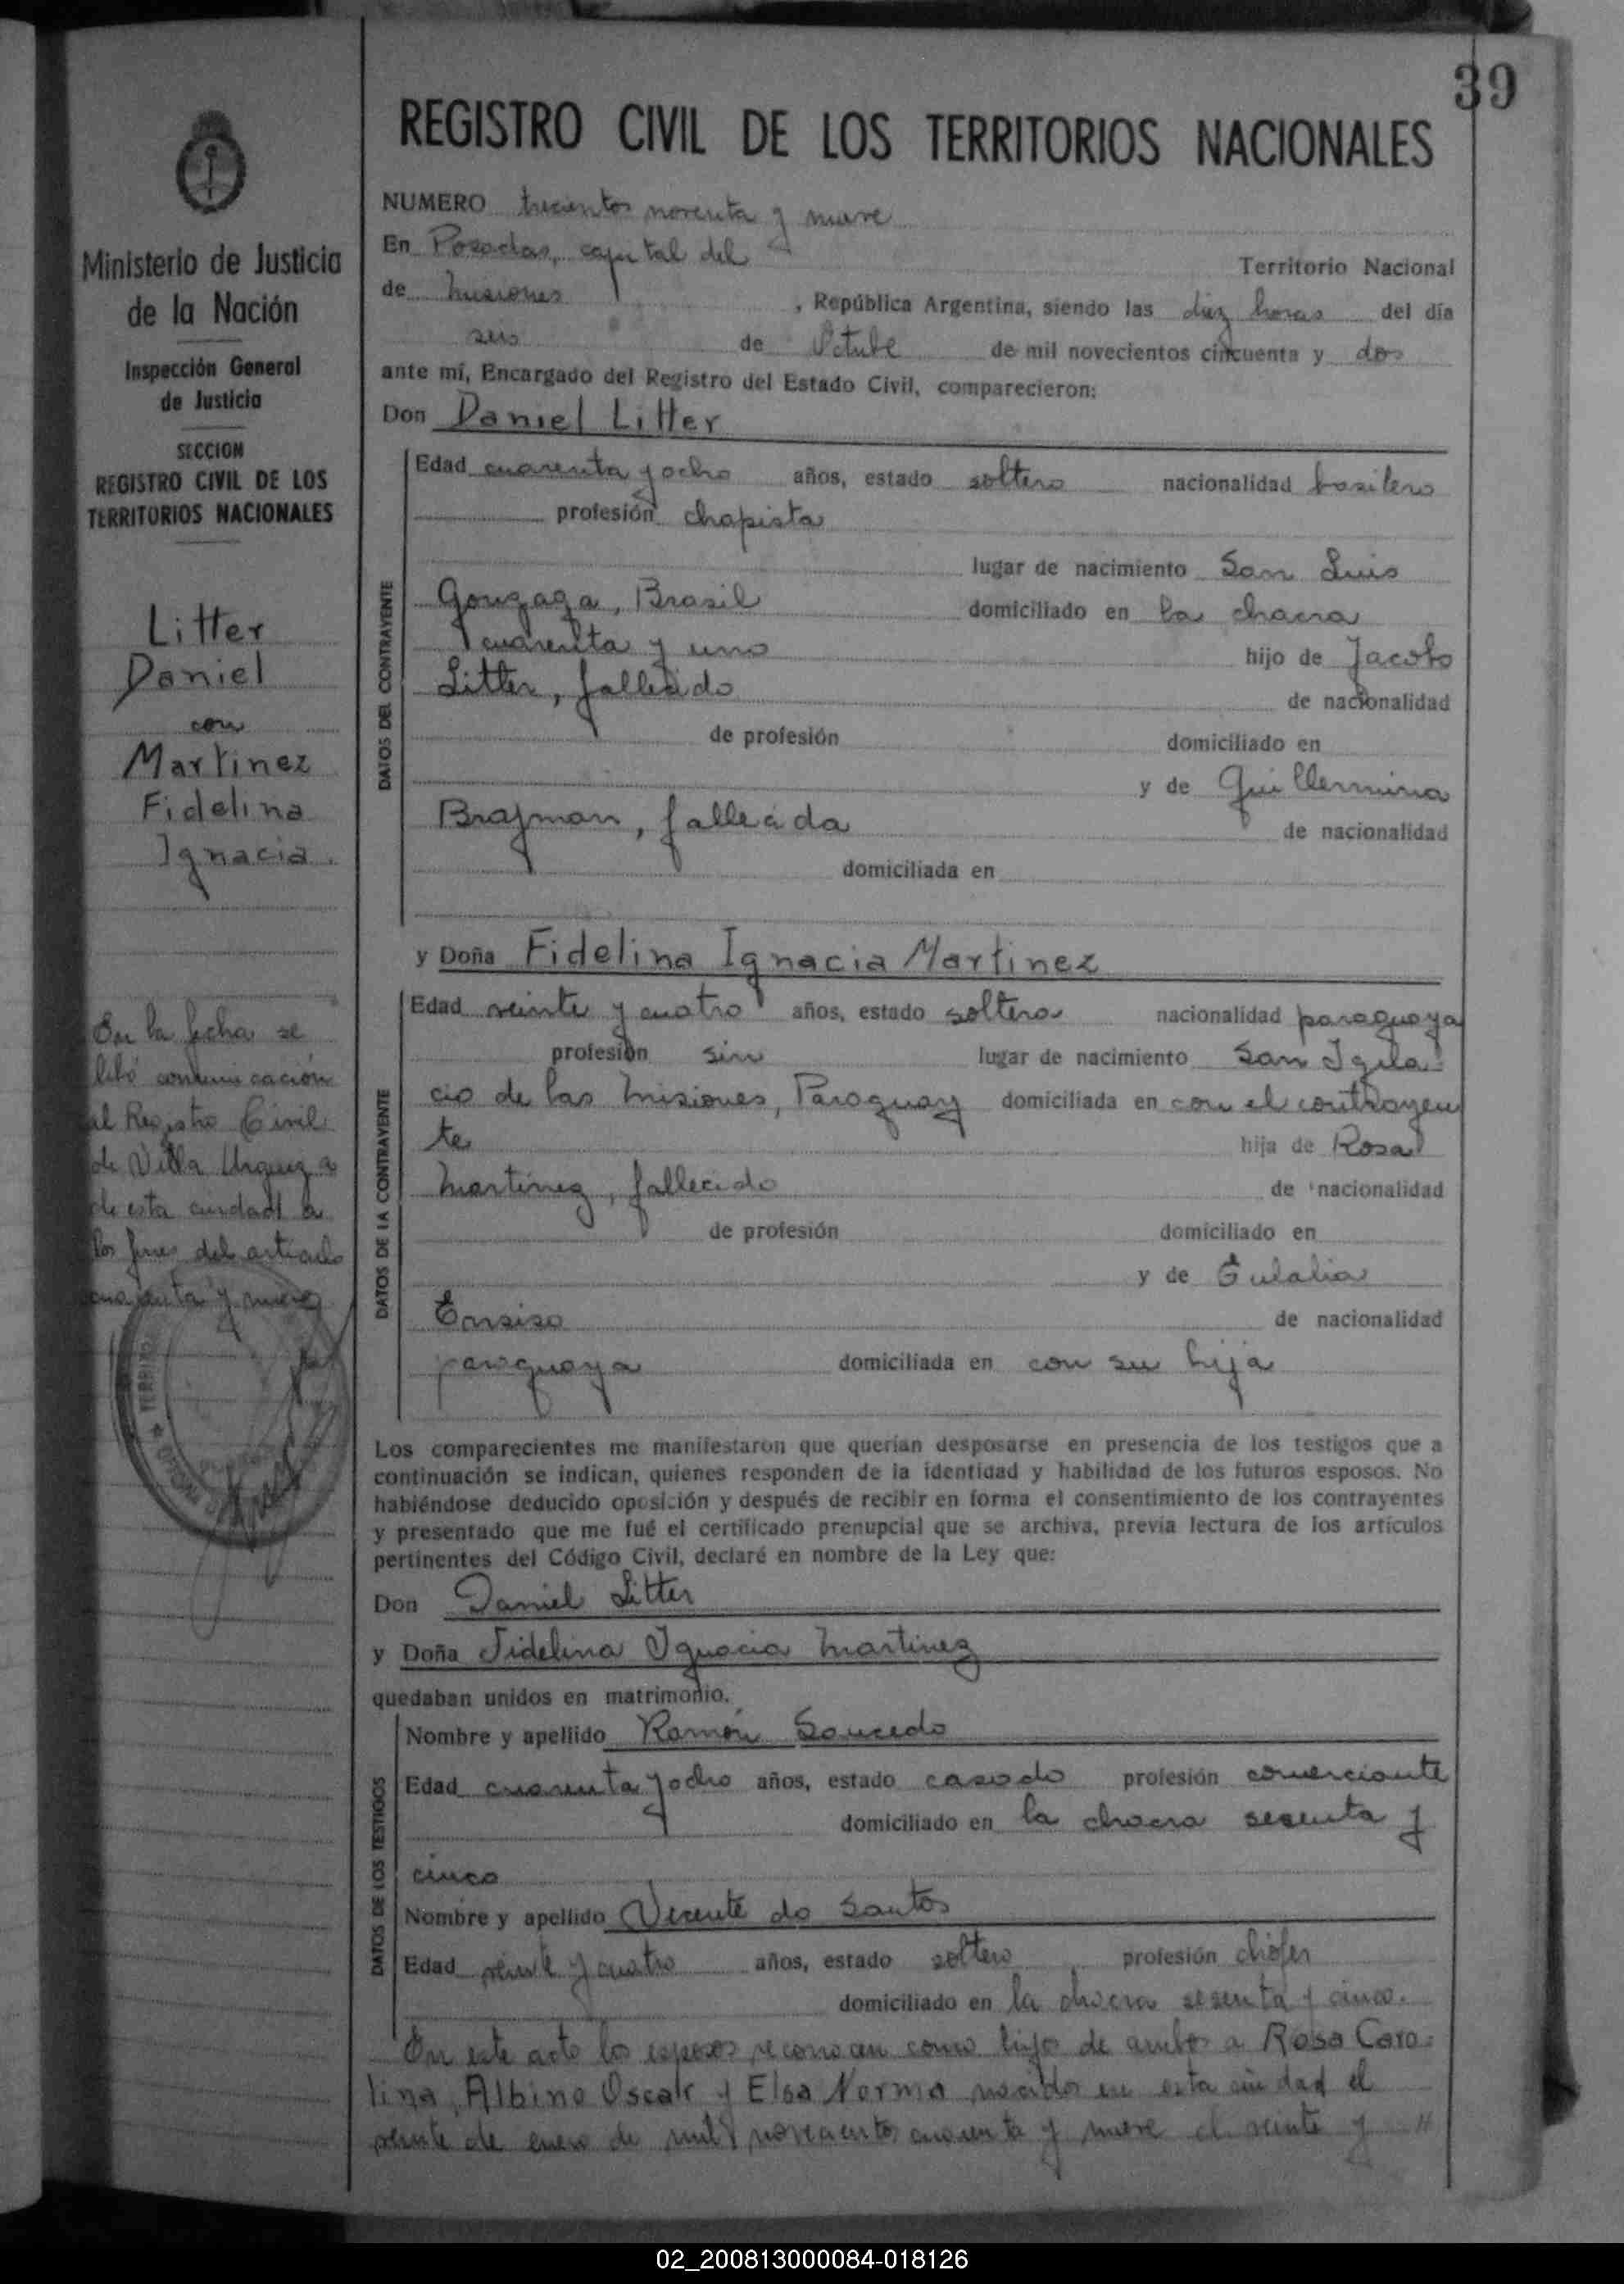 39
REGISTRO CIVIL DE LOS TERRITORIOS NACIONALES
Ministerio de Justicia
de la Nación
Inspección General
de Justicia
SECCION
REGISTRO CIVIL DE LOS
TERRITORIOS NACIONALES
Litter
Daniel
con
Martinez
Fidelina
Ignacia.
En la fecha se
libó comunicación
al Registro Civil
de Villa Urquiza
de esta ciudad a
los fines del articulo
cuarenta y nueve
NUMERO trecientos noventa y nueve
En Posadas, capital del Territorio Nacional
de Misiones, República Argentina, siendo las diez horas del día
seis de Octubre de mil novecientos cincuenta y dos
ante mí, Encargado del Registro del Estado Civil, comparecieron:
Don Daniel Litter
DATOS DEL CONTRAYENTE
Edad cuarenta y ocho años, estado soltero nacionalidad brasilero
profesión chapista
lugar de nacimiento San Luis
Gonzaga, Brasil domiciliado en la chacra
cuarenta y uno hijo de Jacobo
Litter, fallecido de nacionalidad
de profesión domiciliado en
y de Guillermina
fallecida de nacionalidad
domiciliada en
y Doña Fidelina Ignacia Martinez
DATOS DE LA CONTRAYENTE
Edad veinte y cuatro años, estado soltera nacionalidad paraguaya
profesión sin lugar de nacimiento San Igna-
cio de las Misiones, Paraguay domiciliada en con el contrayen
te hija de Rosa
Martinez, fallecido de nacionalidad
de profesión domiciliado en
y de Eulalia
de nacionalidad
paraguaya domiciliada en con su hija
Los comparecientes me manifestaron que querían desposarse en presencia de los testigos que a
continuación se indican, quienes responden de la identidad y habilidad de los futuros esposos. No
habiéndose deducido oposición y después de recibir en forma el consentimiento de los contrayentes
y presentado que me fué el certificado prenupcial que se archiva, previa lectura de los artículos
pertinentes del Código Civil, declaré en nombre de la Ley que:
Don Daniel Litter
y Doña Fidelina Ignacia Martinez
quedaban unidos en matrimonio.
DATOS DE LOS TESTIGOS
Nombre y apellido Ramón Saucedo
Edad cuarenta y ocho años, estado casado profesión comerciante
domiciliado en la chacra sesenta y
cinco
Nombre y apellido Vicente do Santos
Edad veinte y cuatro años, estado soltero profesión chófer
domiciliado en la chacra sesenta y cinco.
En este acto los esposos reconocen como hijo de ambos a Rosa Caro-
lina, Albino Oscar y Elsa Norma nacidos en esta ciudad el
veinte de enero de mil novecientos cuarenta y nueve el veinte y //
02_200813000084-018126